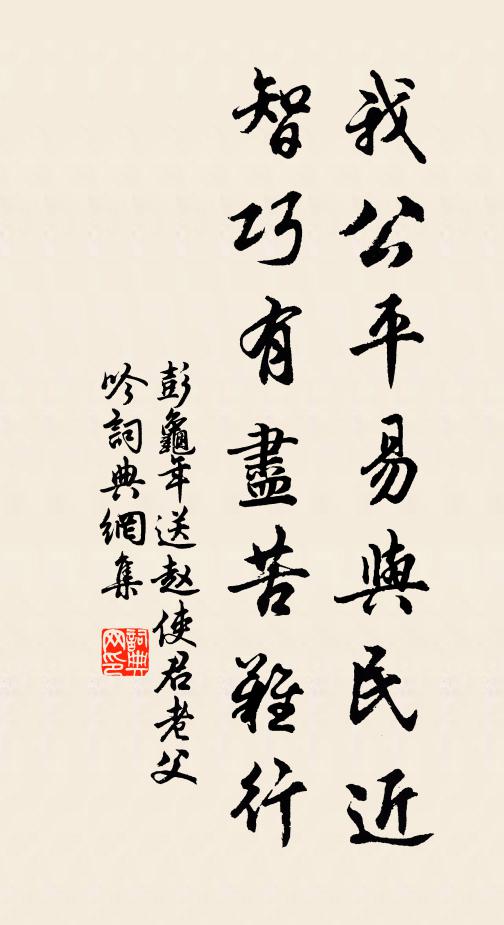 我公平易與民近
智巧有盡苦難行
彭龜年送赵使君老父
吟詞典網集
詞典网印